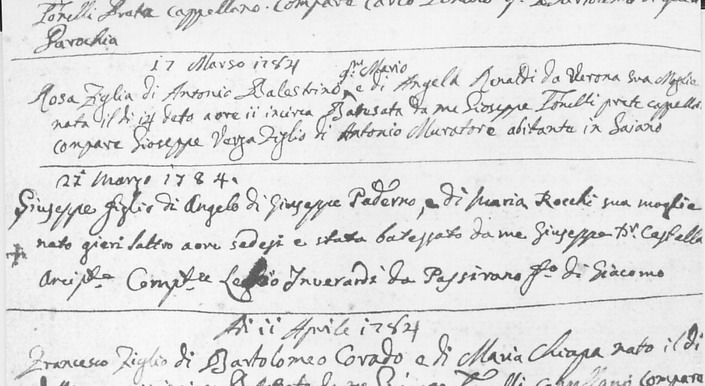 Tonelli Prete cappellano. Compare Carlo
Parochia
17 Marso 1784
qm Mario
Rosa Figlia di Antonio Balestrino e di Angela Rinaldi da Verona sua Moglie
nata il di deto a ore 11 incirca Batusata da me Gioseppe Tonelli prete cappella.
compare Gioseppe Verza Figlio di Antonio Muratore abitante in Saiano
21 marzo 1784.
Giuseppe figlio di Angelo di Giuseppe Paderno, e di Maria Rocchi sua moglie
nato gieri laltro a ore sedesi e stata batezzato da me Giuseppe Castella
Arcipte Comp.re Inverardi da Passirano fo di Giacomo
Adi 11 Aprile 1784
Francesco Figlio di Bartolomeo Corado e di Maria Chiapa nato il di